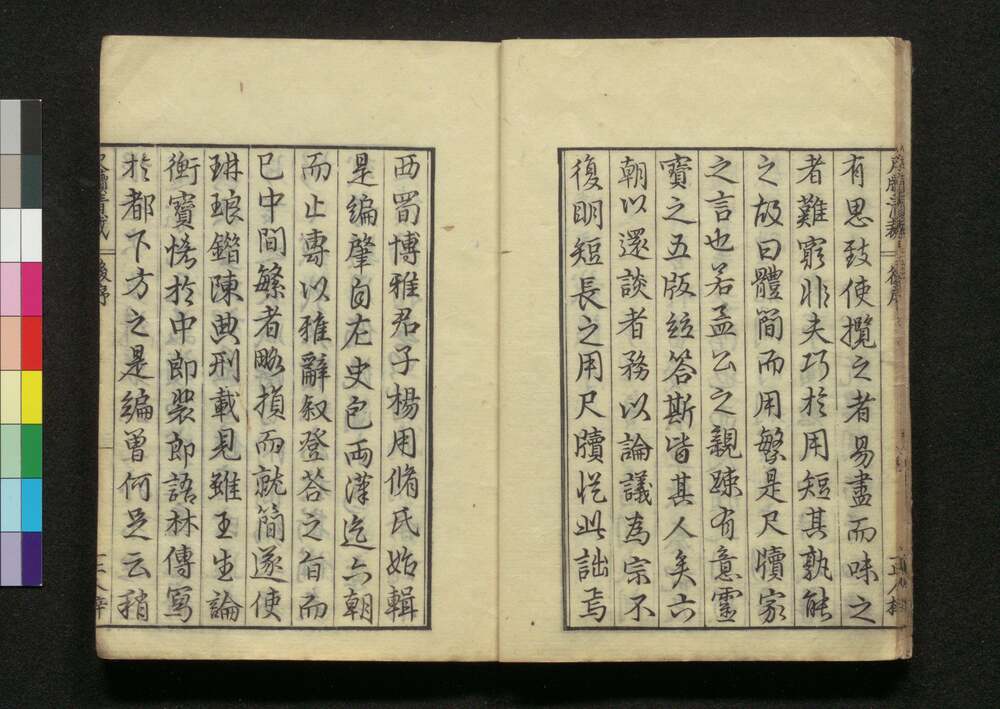 有思致使攬之者易盡而味之
者難窮非夫巧於用短其孰能
之故曰體簡而用繁是尺牘家
之言也若孟公之親疎有意靈
寶之五版竝答斯皆其人矣六
朝以還談者務以論議為宗不
復明短長之用尺牘從此詘焉
西蜀博雅君子楊用脩氏始輯
是編肇自左史包兩漢迄六朝
而止專以雅辭叙登答之旨而
已中間繁者略損而就簡遂使
琳琅鏘陳典刑載見雖王生論
衡寶惜於中郎裴郎語林傳寫
於都下方之是編曾何足云稍
後序